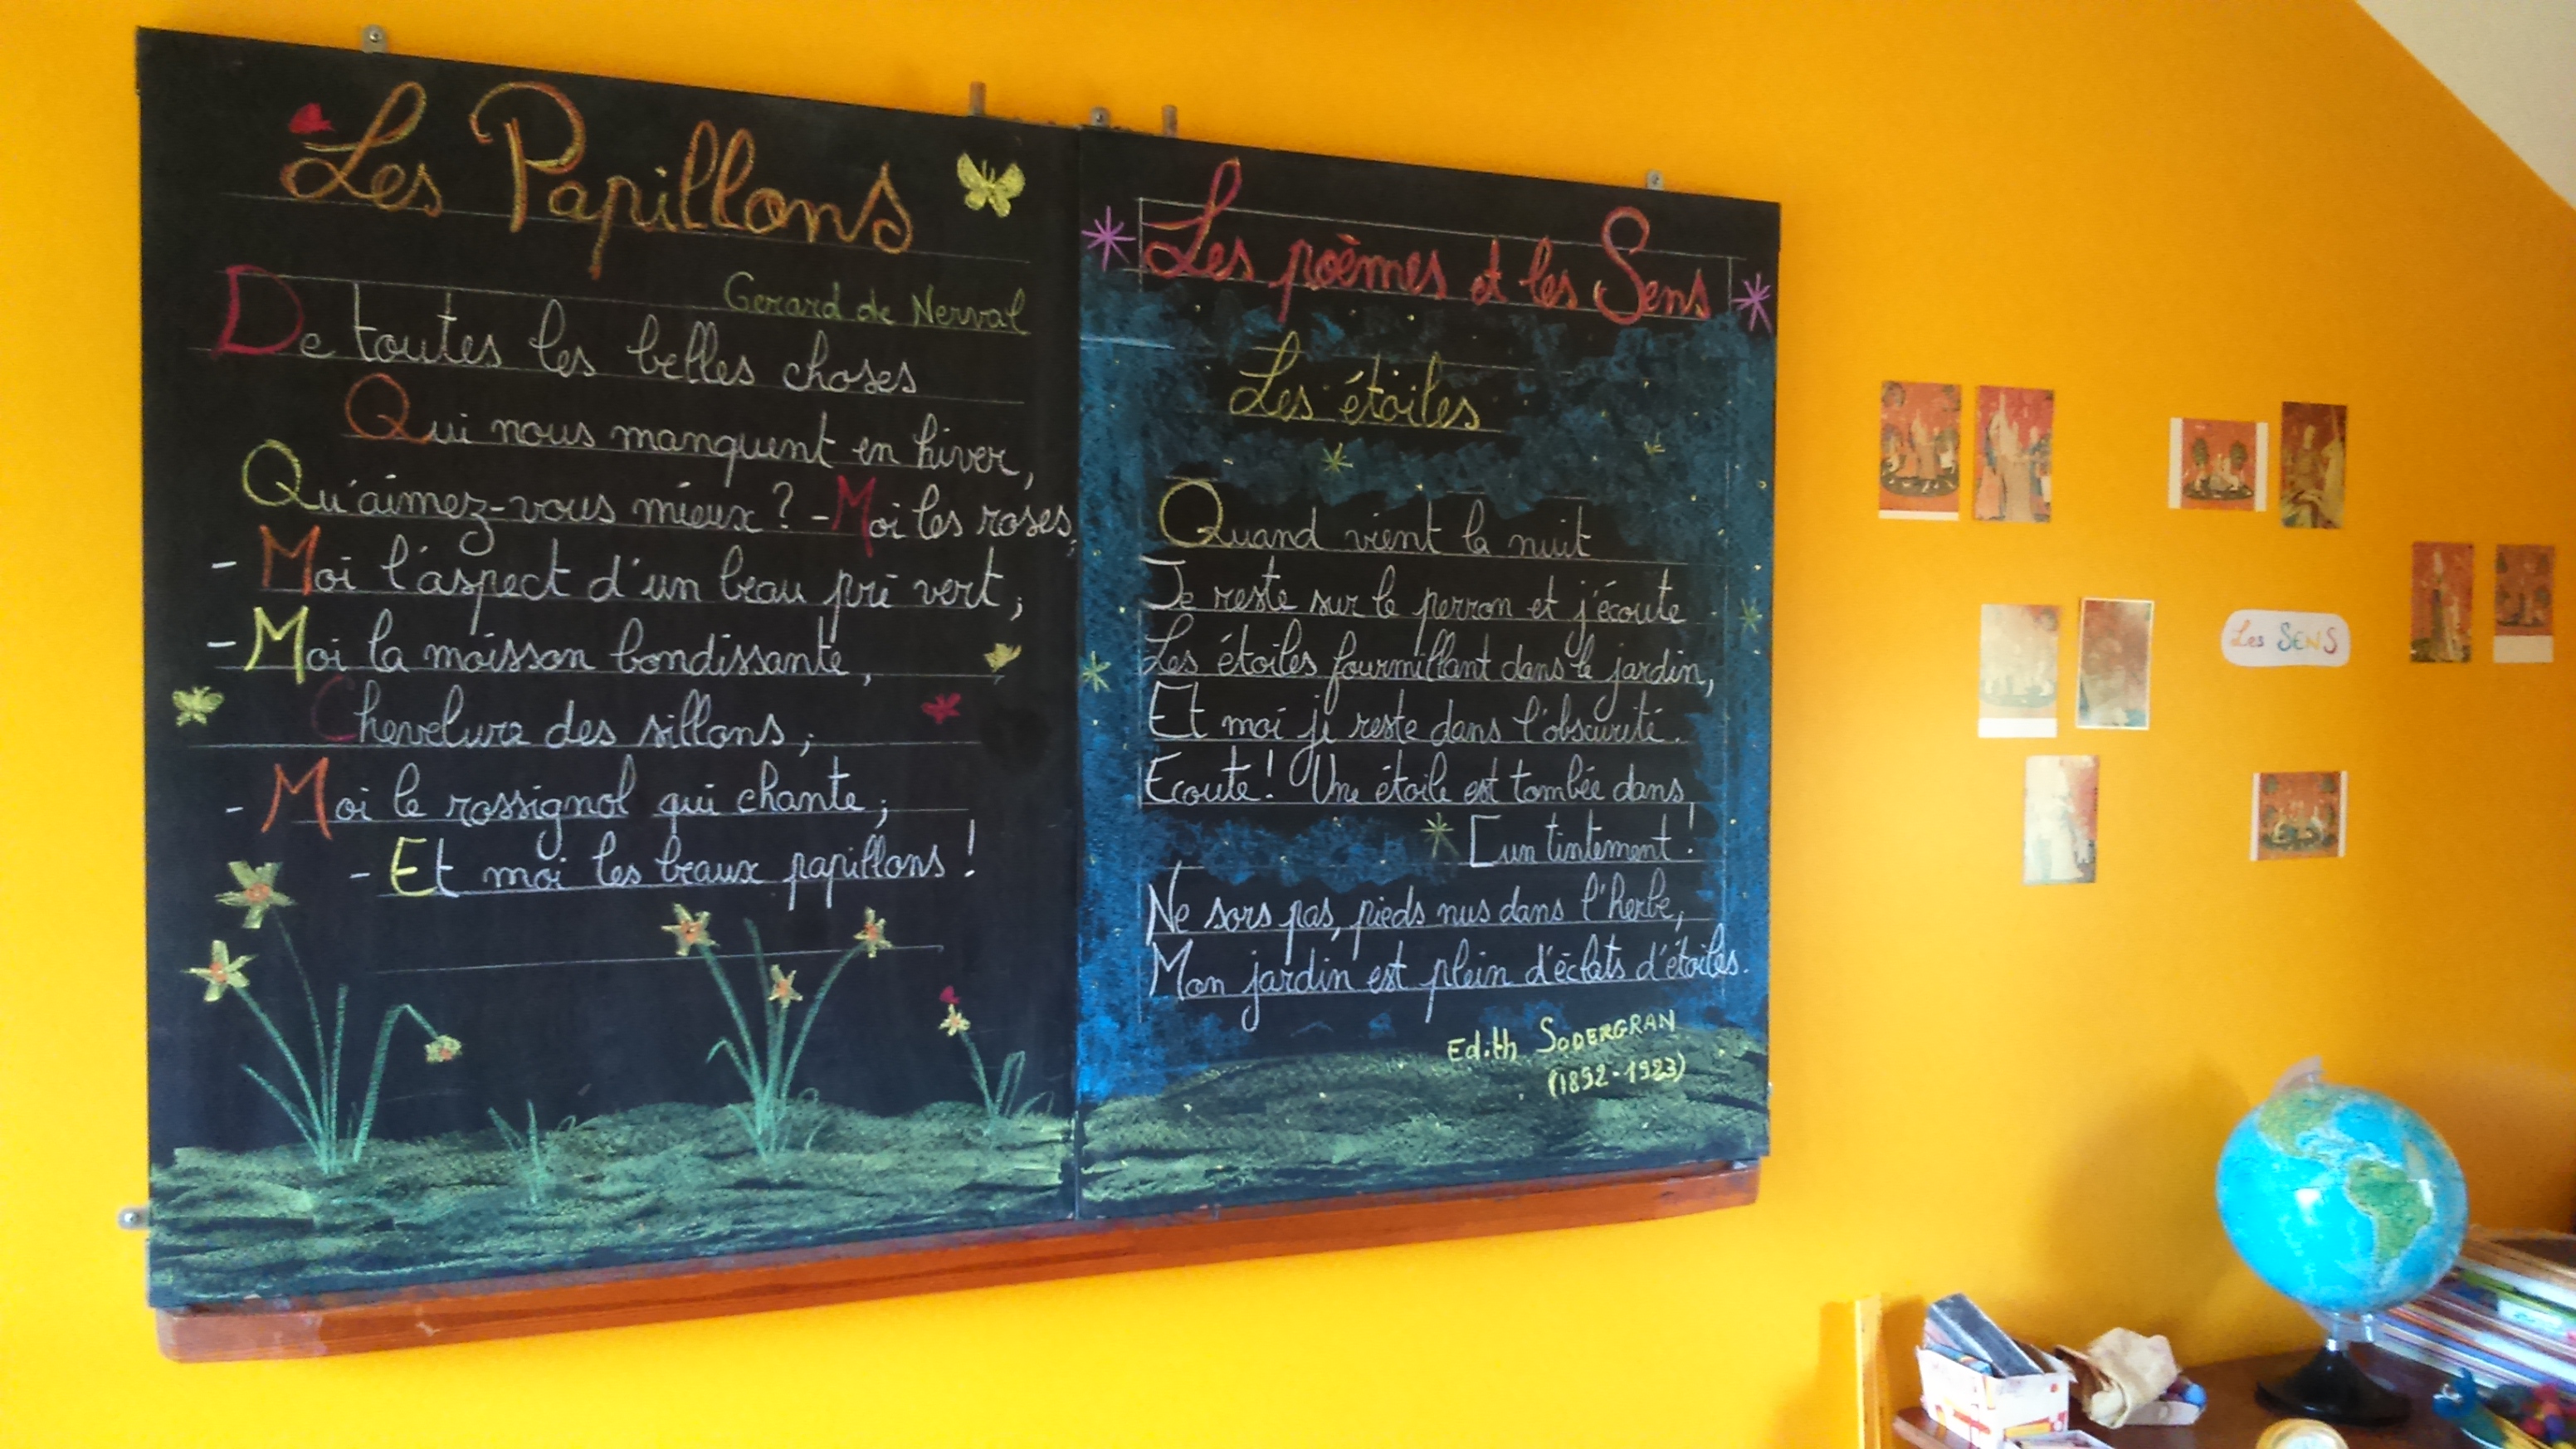 Les Papillons
Gerard de Nerval
De toutes les belles choses
Qui nous manquent en hiver,
Qu'aimez-vous mieux ? - Moi les roses,
- Moi l'aspect d'un beau pré vert ;
- Moi la moisson bondissante,
Chevelure des sillons ;
- Moi le rossignol qui chante ;
- Et moi les beaux papillons !
Les poèmes et les Sens
Les étoiles
Quand vient la nuit
Je reste sur le perron et j'écoute
Les étoiles fourmillant dans le jardin,
Et moi je reste dans l'obscurité.
Ecoute ! Une étoile est tombée dans
[un tintement !
Ne sors pas, pieds nus dans l'herbe,
Mon jardin est plein d'éclats d'étoiles.
Edith SODERGRAN
(1892-1923)
Les SENS